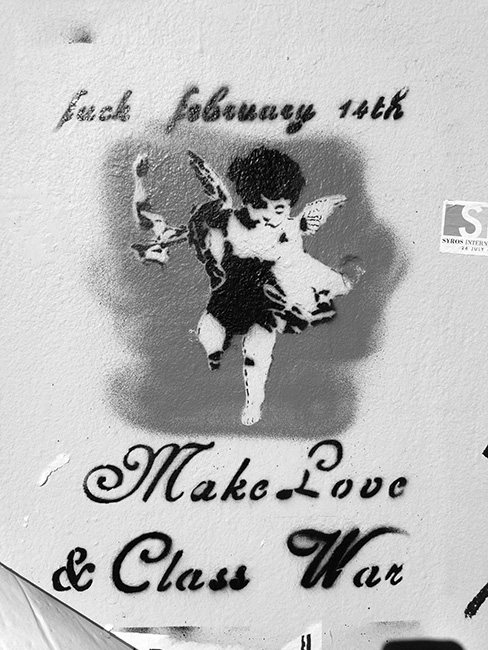 fuck february 14th
S
SYROS INTERN
Make Love
& Class War